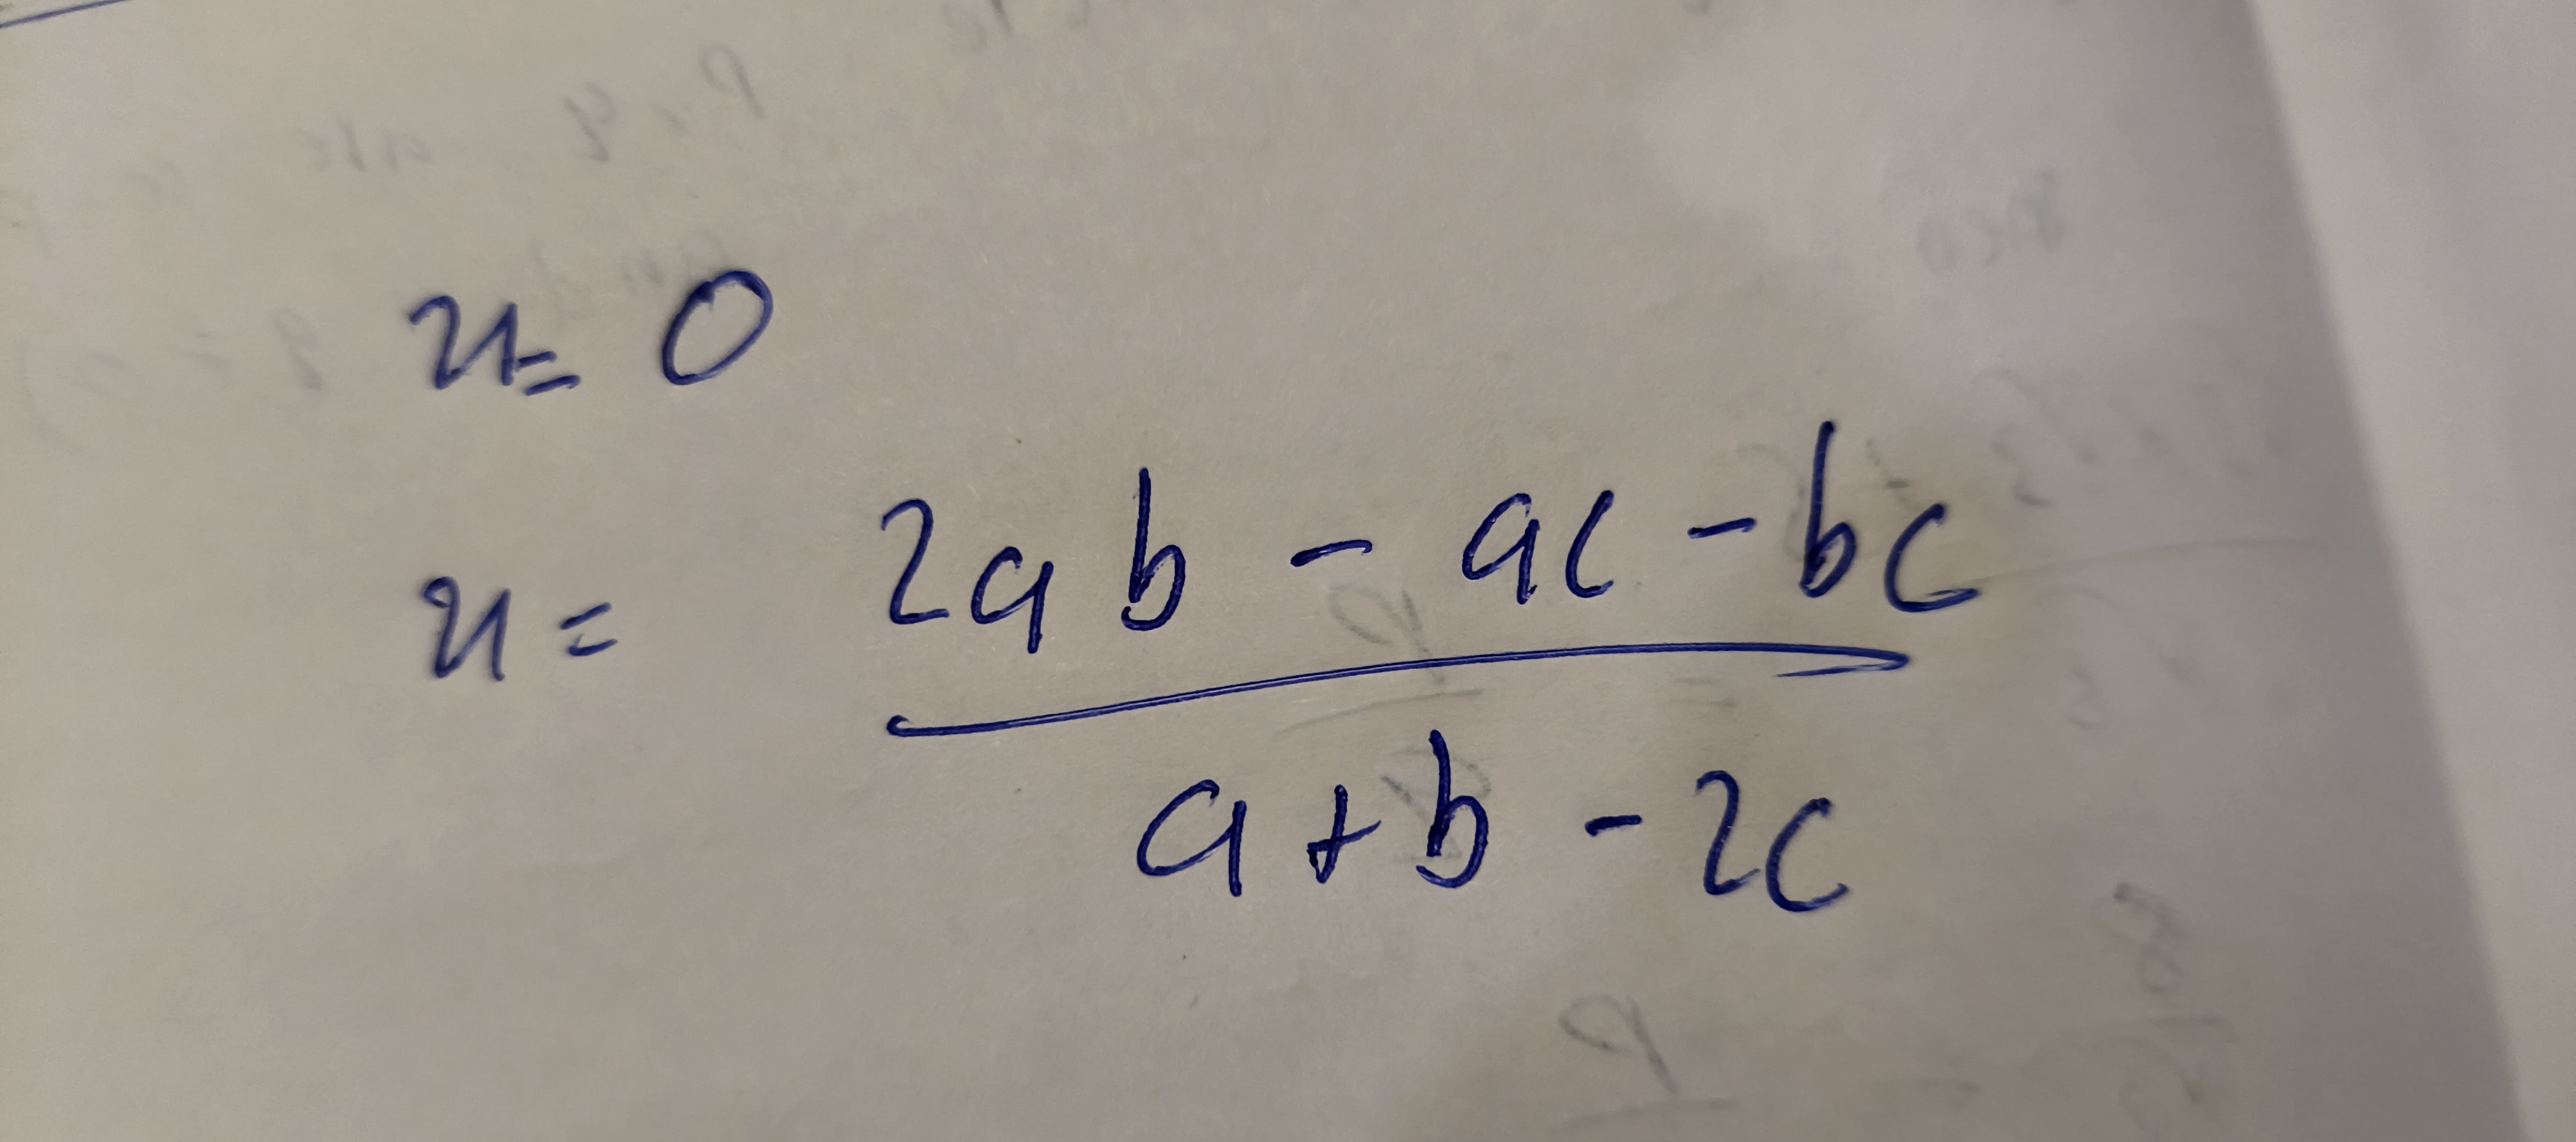 x = 0
x = (2ab - ac - bc) / (a + b - 2c)